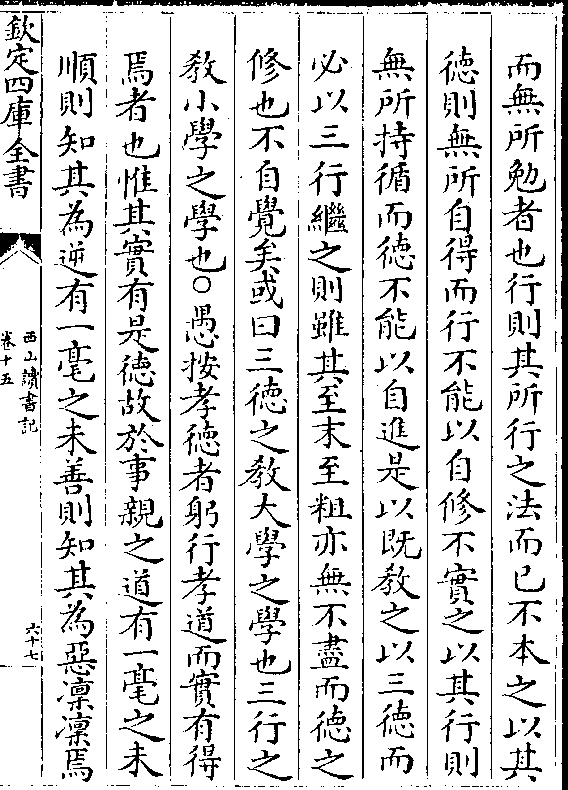 而無所勉者也行則其所行之法而已不本之以其
徳則無所自得而行不能以自修不實之以其行則
無所持循而徳不能以自進是以既教之以三徳而
必以三行繼之則雖其至末至粗亦無不盡而徳之
修也不自覺矣或曰三徳之教大學之學也三行之
教小學之學也○愚按孝徳者躬行孝道而實有得
焉者也惟其實有是徳故於事親之道有一毫之未
順則知其為逆有一毫之未善則知其為惡凛凛焉
欽定四庫全書
西山讀書記
卷十五
六十七